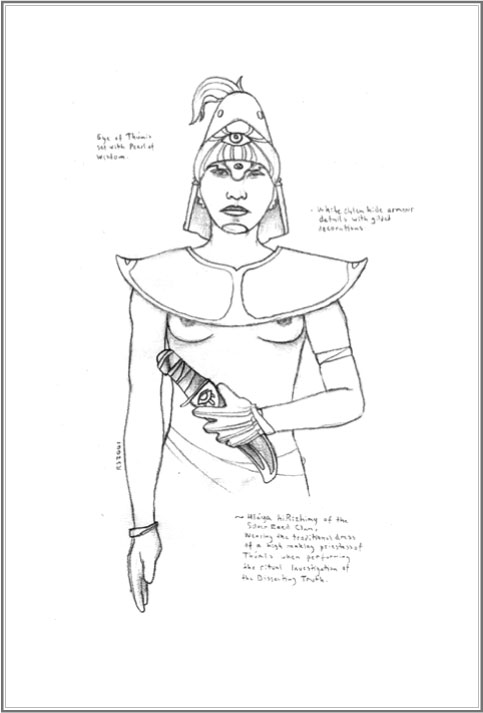 Eye of Thúmis
set with Pearl of
Wisdom.
- White Chlen hide armour
details with gilded
decorations
~ hiRizhimy of the
Silver Reed Clan.
Wearing the traditional dress
of a high ranking priestess of
Thúmis when performing
the ritual Investigation of
the Dissecting Truth.